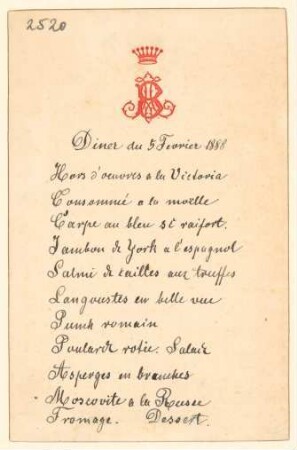 2520
Diner du 5 Fevrier 1888
Hors d'oeuvres a la Victoria
Consommé a la moëlle
Carpe au bleu St raifort.
Jambon de York a l'espagnol
Salmi de cailles aux truffes
Langoustes en belle vue
Punch romain
Poularde rotie. Salade
Asperges en branches
Moscovite a la Russe
Fromage. Dessert.